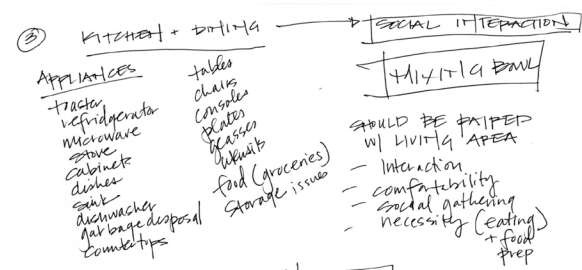 3 KITCHEN + DINING
SOCIAL INTERACTION
MIXING BOWL
APPLIANCES
toaster
refridgerator
microwave
stove
cabinets
dishes
sink
dishwasher
garbage desposal
countertops
tables
chairs
consoles
plates
glasses
utensils
food (groceries)
storage issues
SHOULD BE PAIRED
W/ LIVING AREA
- Interaction
- comfortability
- social gathering
- necessity (eating)
+ food
prep